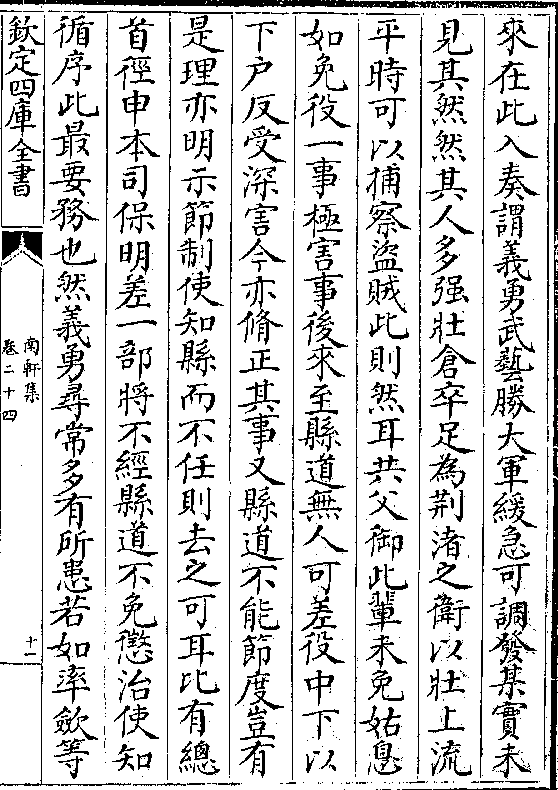 來在此入奏謂義勇武藝勝大軍緩急可調發某實未
見其然然其人多强壯倉卒足為荆渚之衛以壯上流
平時可以捕察盜賊此則然耳共父御此輩未免姑息
如免役一事極害事後來至縣道無人可差役中下以
下户反受深害今亦脩正其事又縣道不能節度豈有
是理亦明示節制使知縣而不任則去之可耳比有總
首徑申本司保明差一部將不經縣道不免懲治使知
循序此最要務也然義勇尋常多有所患若如率斂等
欽定四庫全書
南軒集
卷二十四
十一